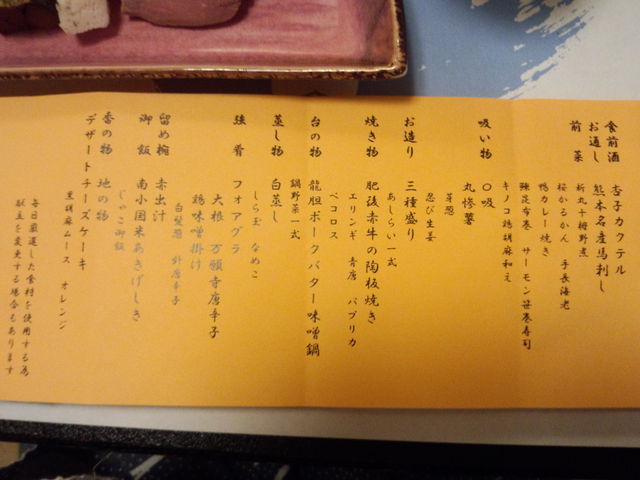 食前酒 杏子カクテル
お通し 熊本名産馬刺し
前菜 新丸十梅野煮
桜かるかん 手長海老
鴨カレー焼き
錬昆布巻 サーモン笹巻寿司
キノコ鶏胡麻和え
吸い物 〇吸
丸惨薯
芽葱
忍び生姜
お造り 三種盛り
あしらい一式
焼き物 肥後赤牛の陶板焼き
エリンギ 青唐 パプリカ
ペコロス
台の物 龍胆ポークバター味噌鍋
鍋野菜一式
蒸し物 白蒸し
しら玉 なめこ
強肴 フォアグラ
大根 万願寺唐辛子
鶏味噌掛け
白髪葱 針唐辛子
留め椀 赤出汁
御飯 南小国米あきげしき
じゃこ御飯
香の物 地の物
デザート チーズケーキ
黒胡麻ムース オレンジ
毎日厳選した食材を使用する為
献立を変更する場合もあります